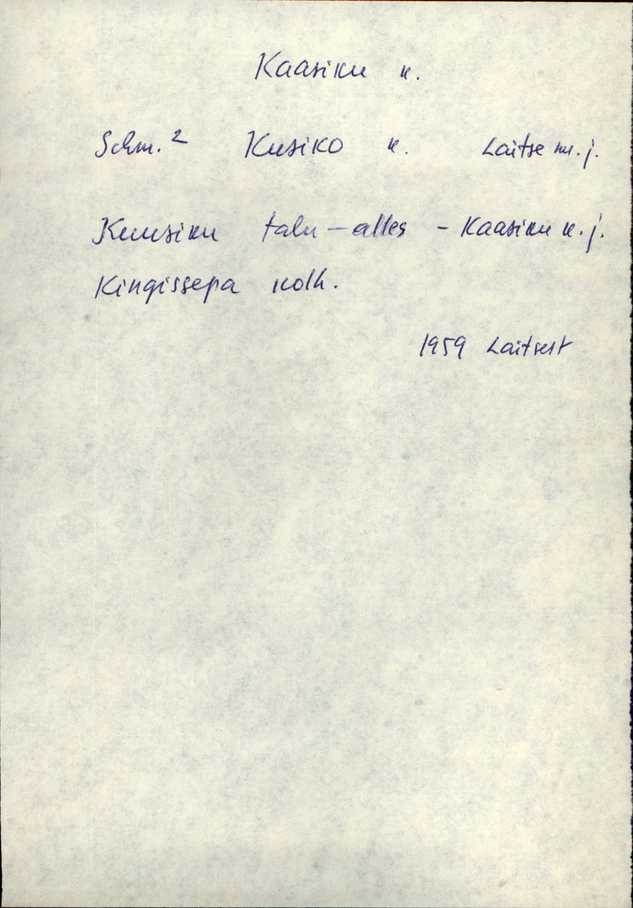 Kaasiku k.
Schm.² Kusiko k. Laitse m. j.
Kuusiku talu – alles – Kaasiku k. j.
Kingissepa kolh.
1959 Laitsest